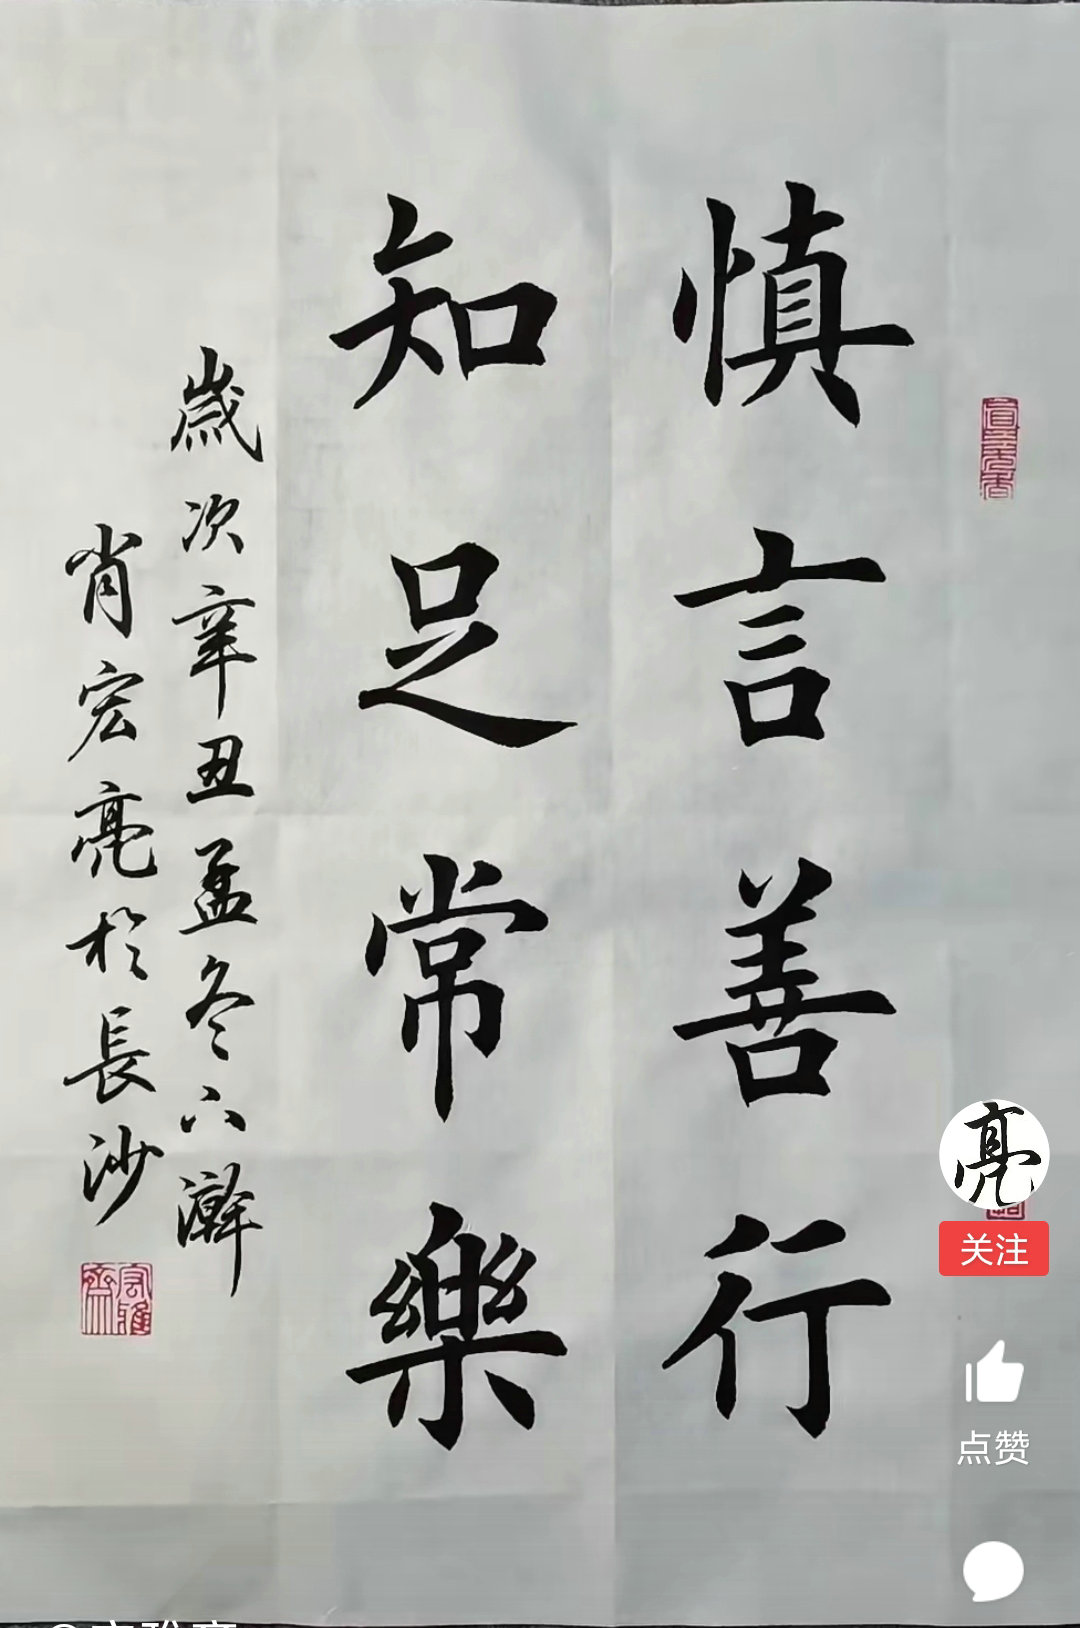 慎言善行
知足常樂
歲次辛丑孟冬六瀚
肖宏亮於長沙
宏雅齋
亮
关注
点赞